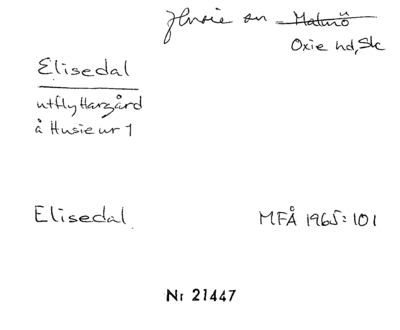 Husie sn Malmö
Oxie hd, Sk
Elisedal
utflyttargård
å Husie nr 1
Elisedal. MFÅ 1965:101
Nr 21447